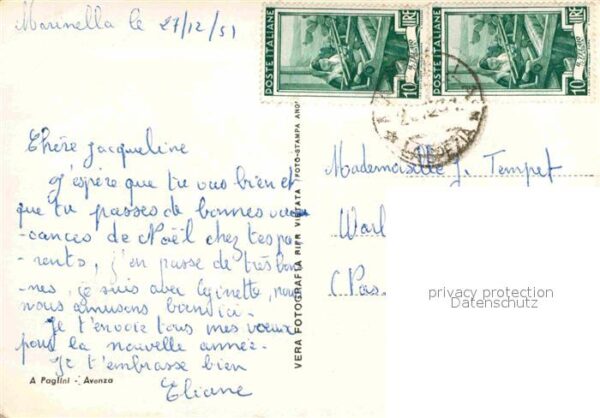 Marinella le 27/12/51
POSTE ITALIANE
10 LIRE
POSTE ITALIANE
10 LIRE
LA SPEZIA
Chère Jacqueline
J'espère que tu vas bien et
que tu passes de bonnes va
cances de Noël chez tes pa
rents, j'en passe de très bon
nes, je suis avec Ginette, nous
nous amusons bien ici.
Je t'envoie tous mes vœux
pour la nouvelle année.
Je t'embrasse bien
Eliane
A Paglini - Avenza
VERA FOTOGRAFIA RIPR VIETATA (FOTO-STAMPA ANG
Mademoiselle J. Tempet
Warl
(Pas.
privacy protection
Datenschutz